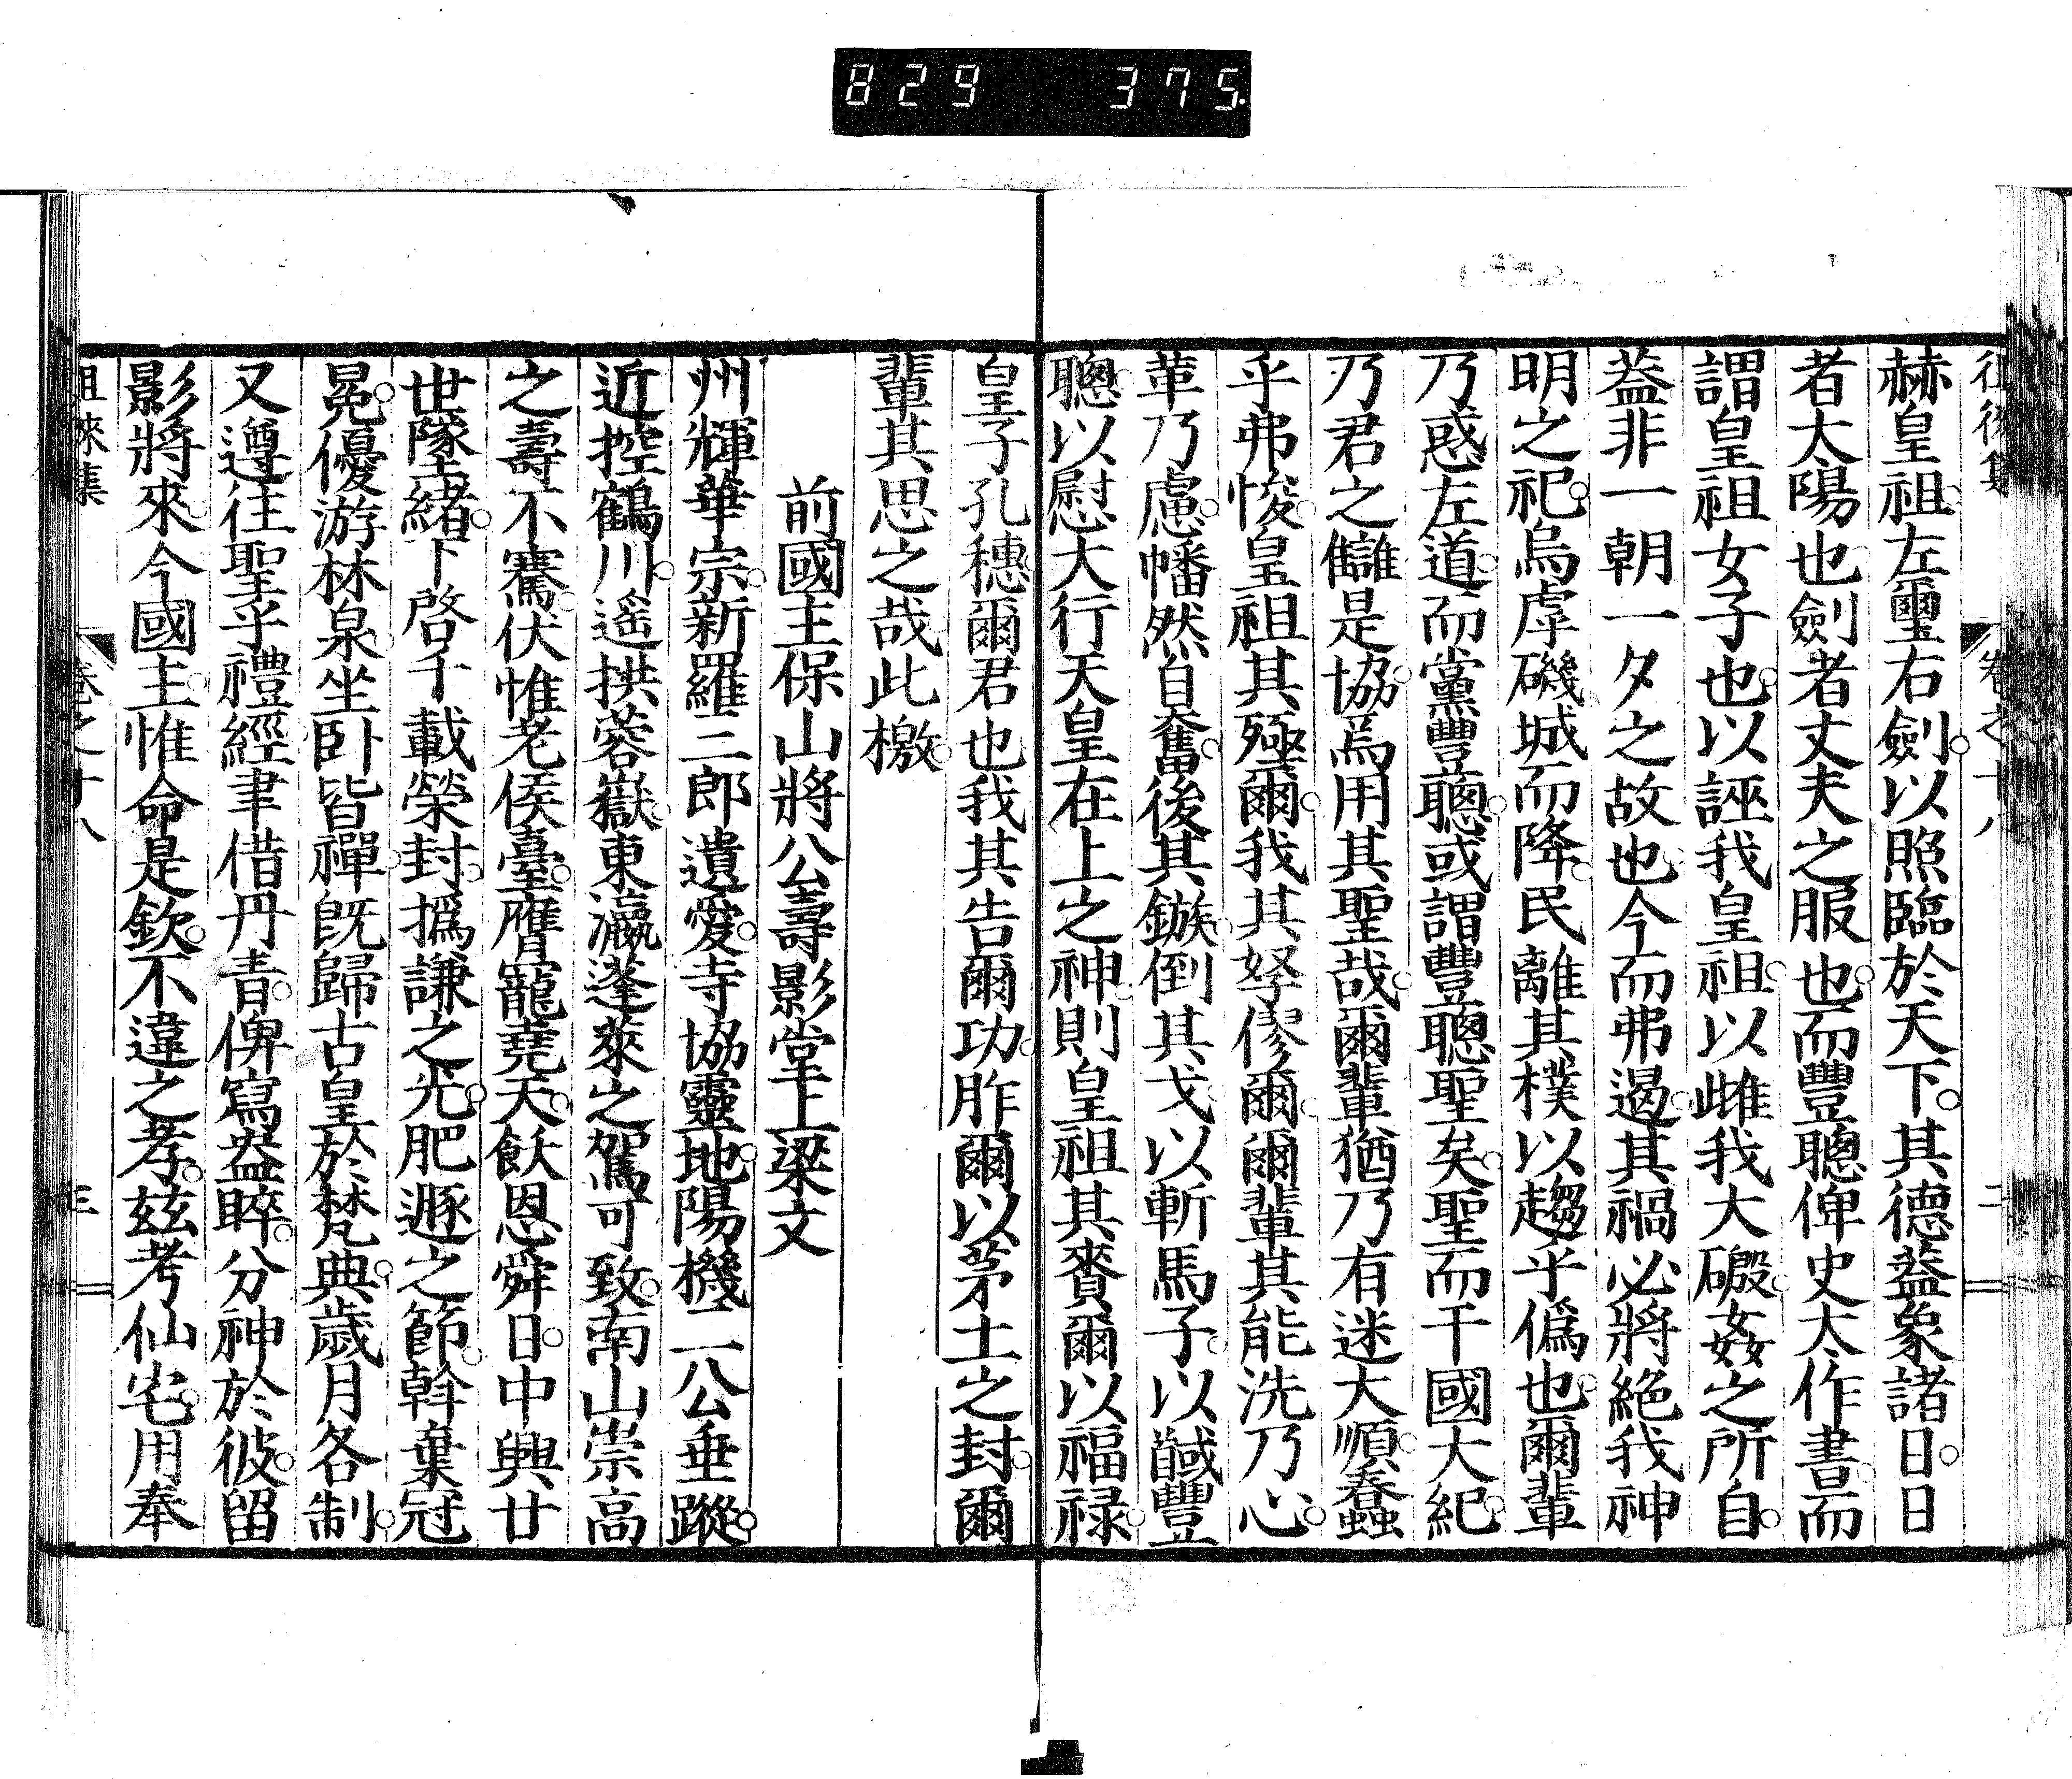 829 375
赫皇祖左璽右劍以照臨於天下其德蓋象諸日日
者太陽也劍者丈夫之服也而豐聰俾史太作書而
謂皇祖女子也以誣我皇祖以雌我大磤姦之所自
蓋非一朝一夕之故也今而弗遏其禍必將絕我神
明之祀烏虖磯城而降民離其樸以趨乎僞也爾輩
乃惑左道而黨豐聰或謂豐聰聖矣聖而干國大紀
乃君之讎是協焉用其聖哉爾輩猶乃有迷大順蠢
乎弗悛皇祖其殛爾我其孥僇爾爾輩其能洗乃心
革乃慮幡然自奮後其鏃倒其戈以斬馬子以馘豐
聰以慰大行天皇在上之神則皇祖其賚爾以福祿
皇子孔穗爾君也我其告爾功胙爾以茅土之封爾
輩其思之哉此檄
前國主保山將公壽影堂上梁文
州輝華宗新羅三郎遺愛寺協靈地陽機二八公垂蹤
近控鶴川遙拱蓉嶽東瀛蓬萊之駕可致南山崇高
之壽不騫伏惟老侯臺膺寵堯天飫恩舜日中興廿
世墜緒下啓千載榮封撝謙之光肥遯之節斡棄冠
冕優游林泉坐臥皆禪旣歸古皇於梵典歲月各制
又遵往聖乎禮經聿借丹青俾寫盎睟分神於彼留
影將來今國主惟命是欽不違之孝茲考仙宅用奉
徂徠集 卷之十八 三